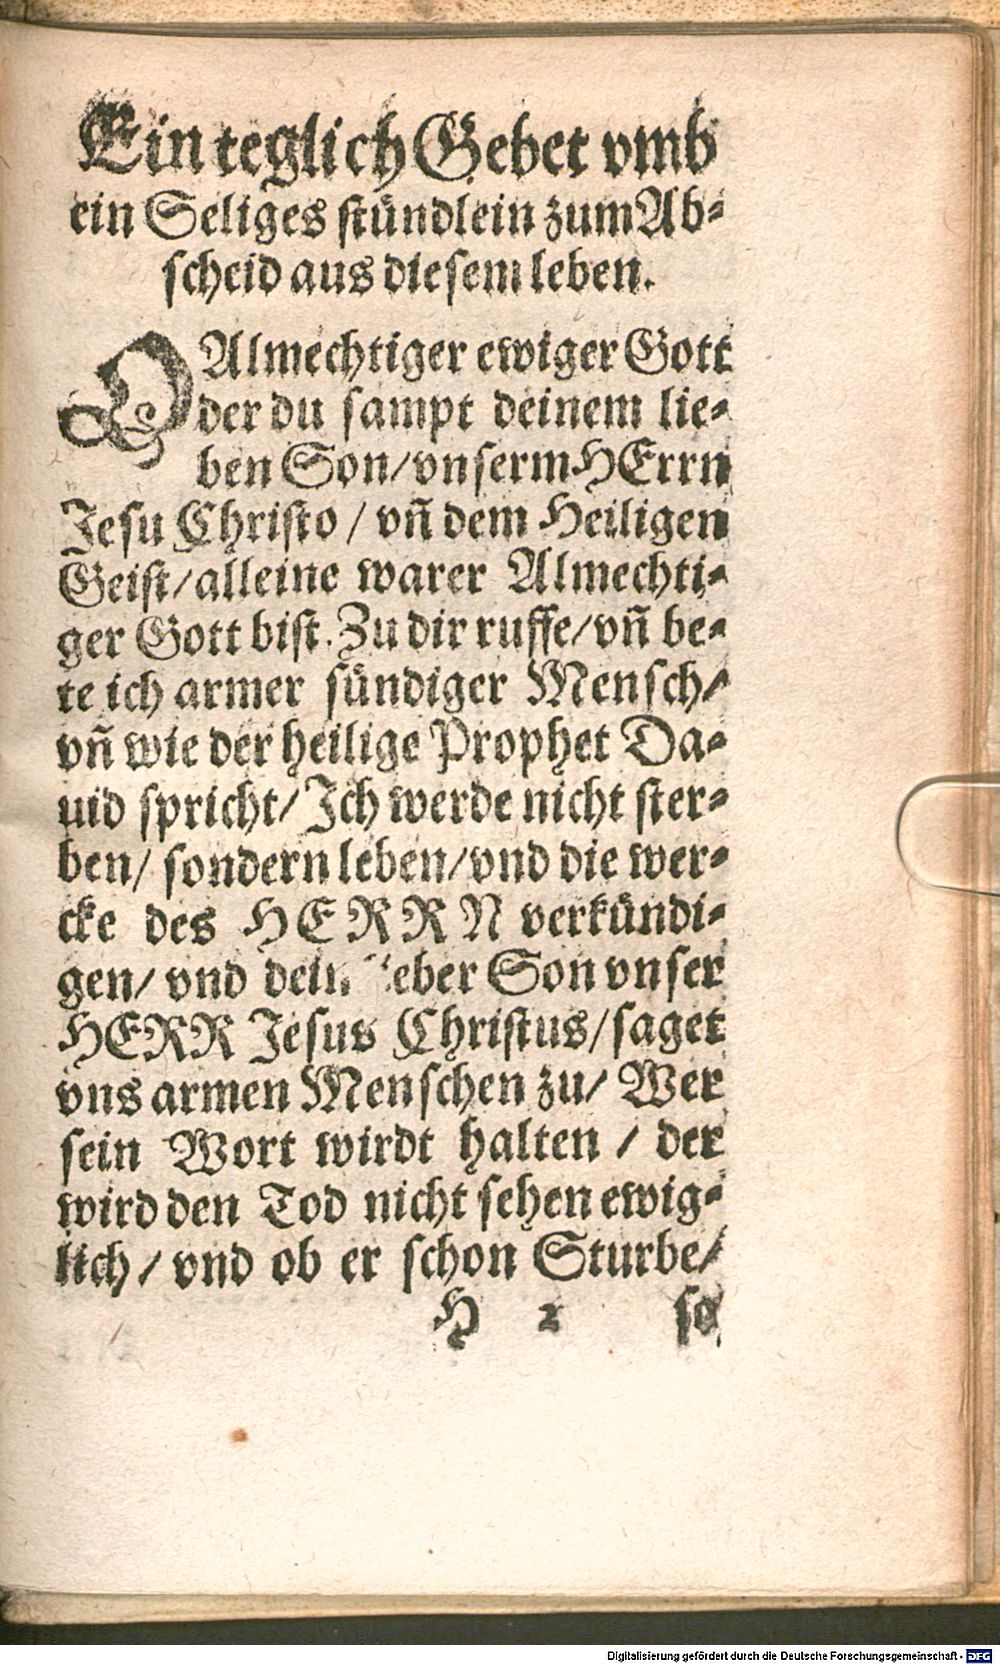 Ein teglich Gebet vmb
ein Seliges stündlein zum Ab-
scheid aus diesem leben.
O Almechtiger ewiger Gott
der du sampt deinem lie-
ben Son/ vnserm HErrn
Jesu Christo / vñ dem Heiligen
Geist/ alleine warer Almechti-
ger Gott bist. Zu dir ruffe/ vñ be-
te ich armer sündiger Mensch/
vñ wie der heilige Prophet Da-
uid spricht/ Ich werde nicht ster-
ben/ sondern leben/ vnd die wer-
cke des HERRN verkündi-
gen/ vnd dein eber Son vnser
HERR Jesus Christus/ saget
vns armen Menschen zu/ Wer
sein Wort wirdt halten / der
wird den Tod nicht sehen ewig-
lich/ vnd ob er schon Sturbe/
H 2 so
Digitalisierung gefördert durch die Deutsche Forschungsgemeinschaft - DFG